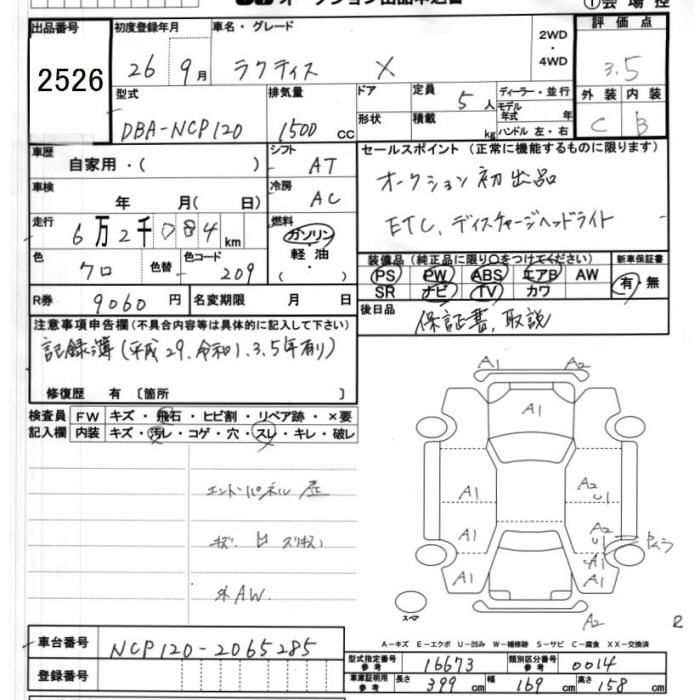 出品番号
2526
初度登録年月
26 9月
車名・グレード
ラクティス X
2WD・4WD
評価点
3.5
外装 内装
C B
型式
DBA-NCP120
排気量
1500 cc
ドア
形状
定員
5人
積載
kg
ディーラー・並行
モデル年式 年
ハンドル 左・右
車歴
自家用・( )
シフト
AT
車検
年 月( 日)
冷房
AC
走行
6万2千084 km
燃料
ガソリン・軽油・( )
色
クロ
色替
色コード
209
R券
9060円
名変期限 月 日
セールスポイント(正常に機能するものに限ります)
オークション初出品
ETC、ディスチャージヘッドライト
装備品(純正品に限り○をつけてください)
PS PW ABS エアB AW
SR ナビ TV カワ
新車保証書
有・無
後日品
保証書、取説
注意事項申告欄(不具合内容等は具体的に記入して下さい)
記録簿(平成29、令和1、3、5年有り)
修復歴 有〔箇所 〕
検査員記入欄
FW キズ・飛石・ヒビ割・リペア跡・×要
内装 キズ・汚レ・コゲ・穴・スレ・キレ・破レ
外AW
A1
A2
A1
A1
A2
U1
A1
A2
U1
A1
A1
A1
A2
スペア
R
A-キズ E-エクボ U-凹み W-補修跡 S-サビ C-腐食 XX-交換済
車台番号
NCP120-2065285
登録番号
型式指定番号 参考
16673
類別区分番号 参考
0014
車庫証明用 参考
長さ 399 cm
幅 169 cm
高さ 158 cm